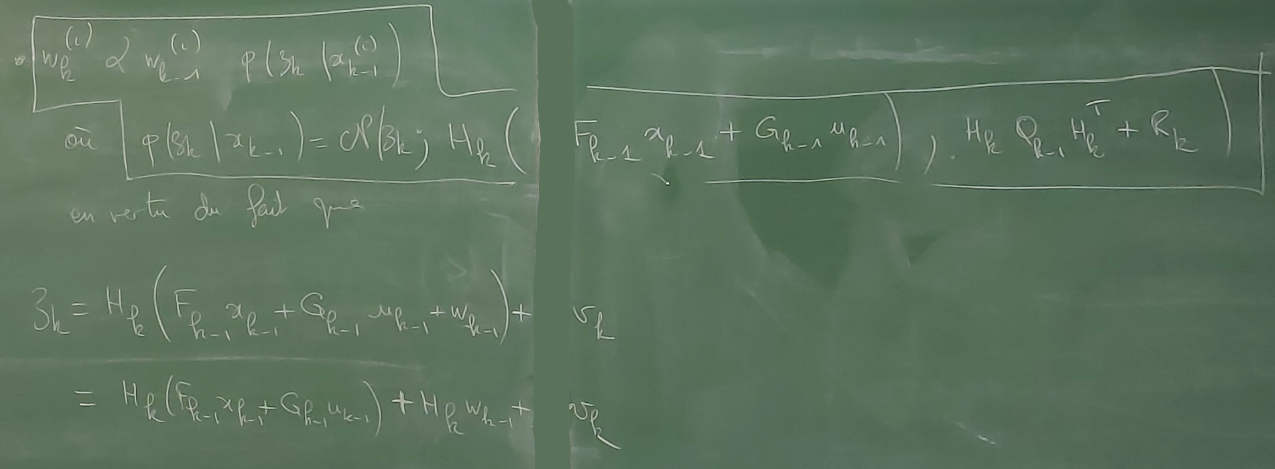 • w_k^{(i)} ∝ w_{k-1}^{(i)} p(z_k | x_{k-1}^{(i)})
où p(z_k | x_{k-1}) = N(z_k; H_k(F_{k-1} x_{k-1} + G_{k-1} u_{k-1}), H_k Q_{k-1} H_k^T + R_k)
en vertu du fait que
z_k = H_k(F_{k-1} x_{k-1} + G_{k-1} u_{k-1} + w_{k-1}) + v_k
= H_k(F_{k-1} x_{k-1} + G_{k-1} u_{k-1}) + H_k w_{k-1} + v_k